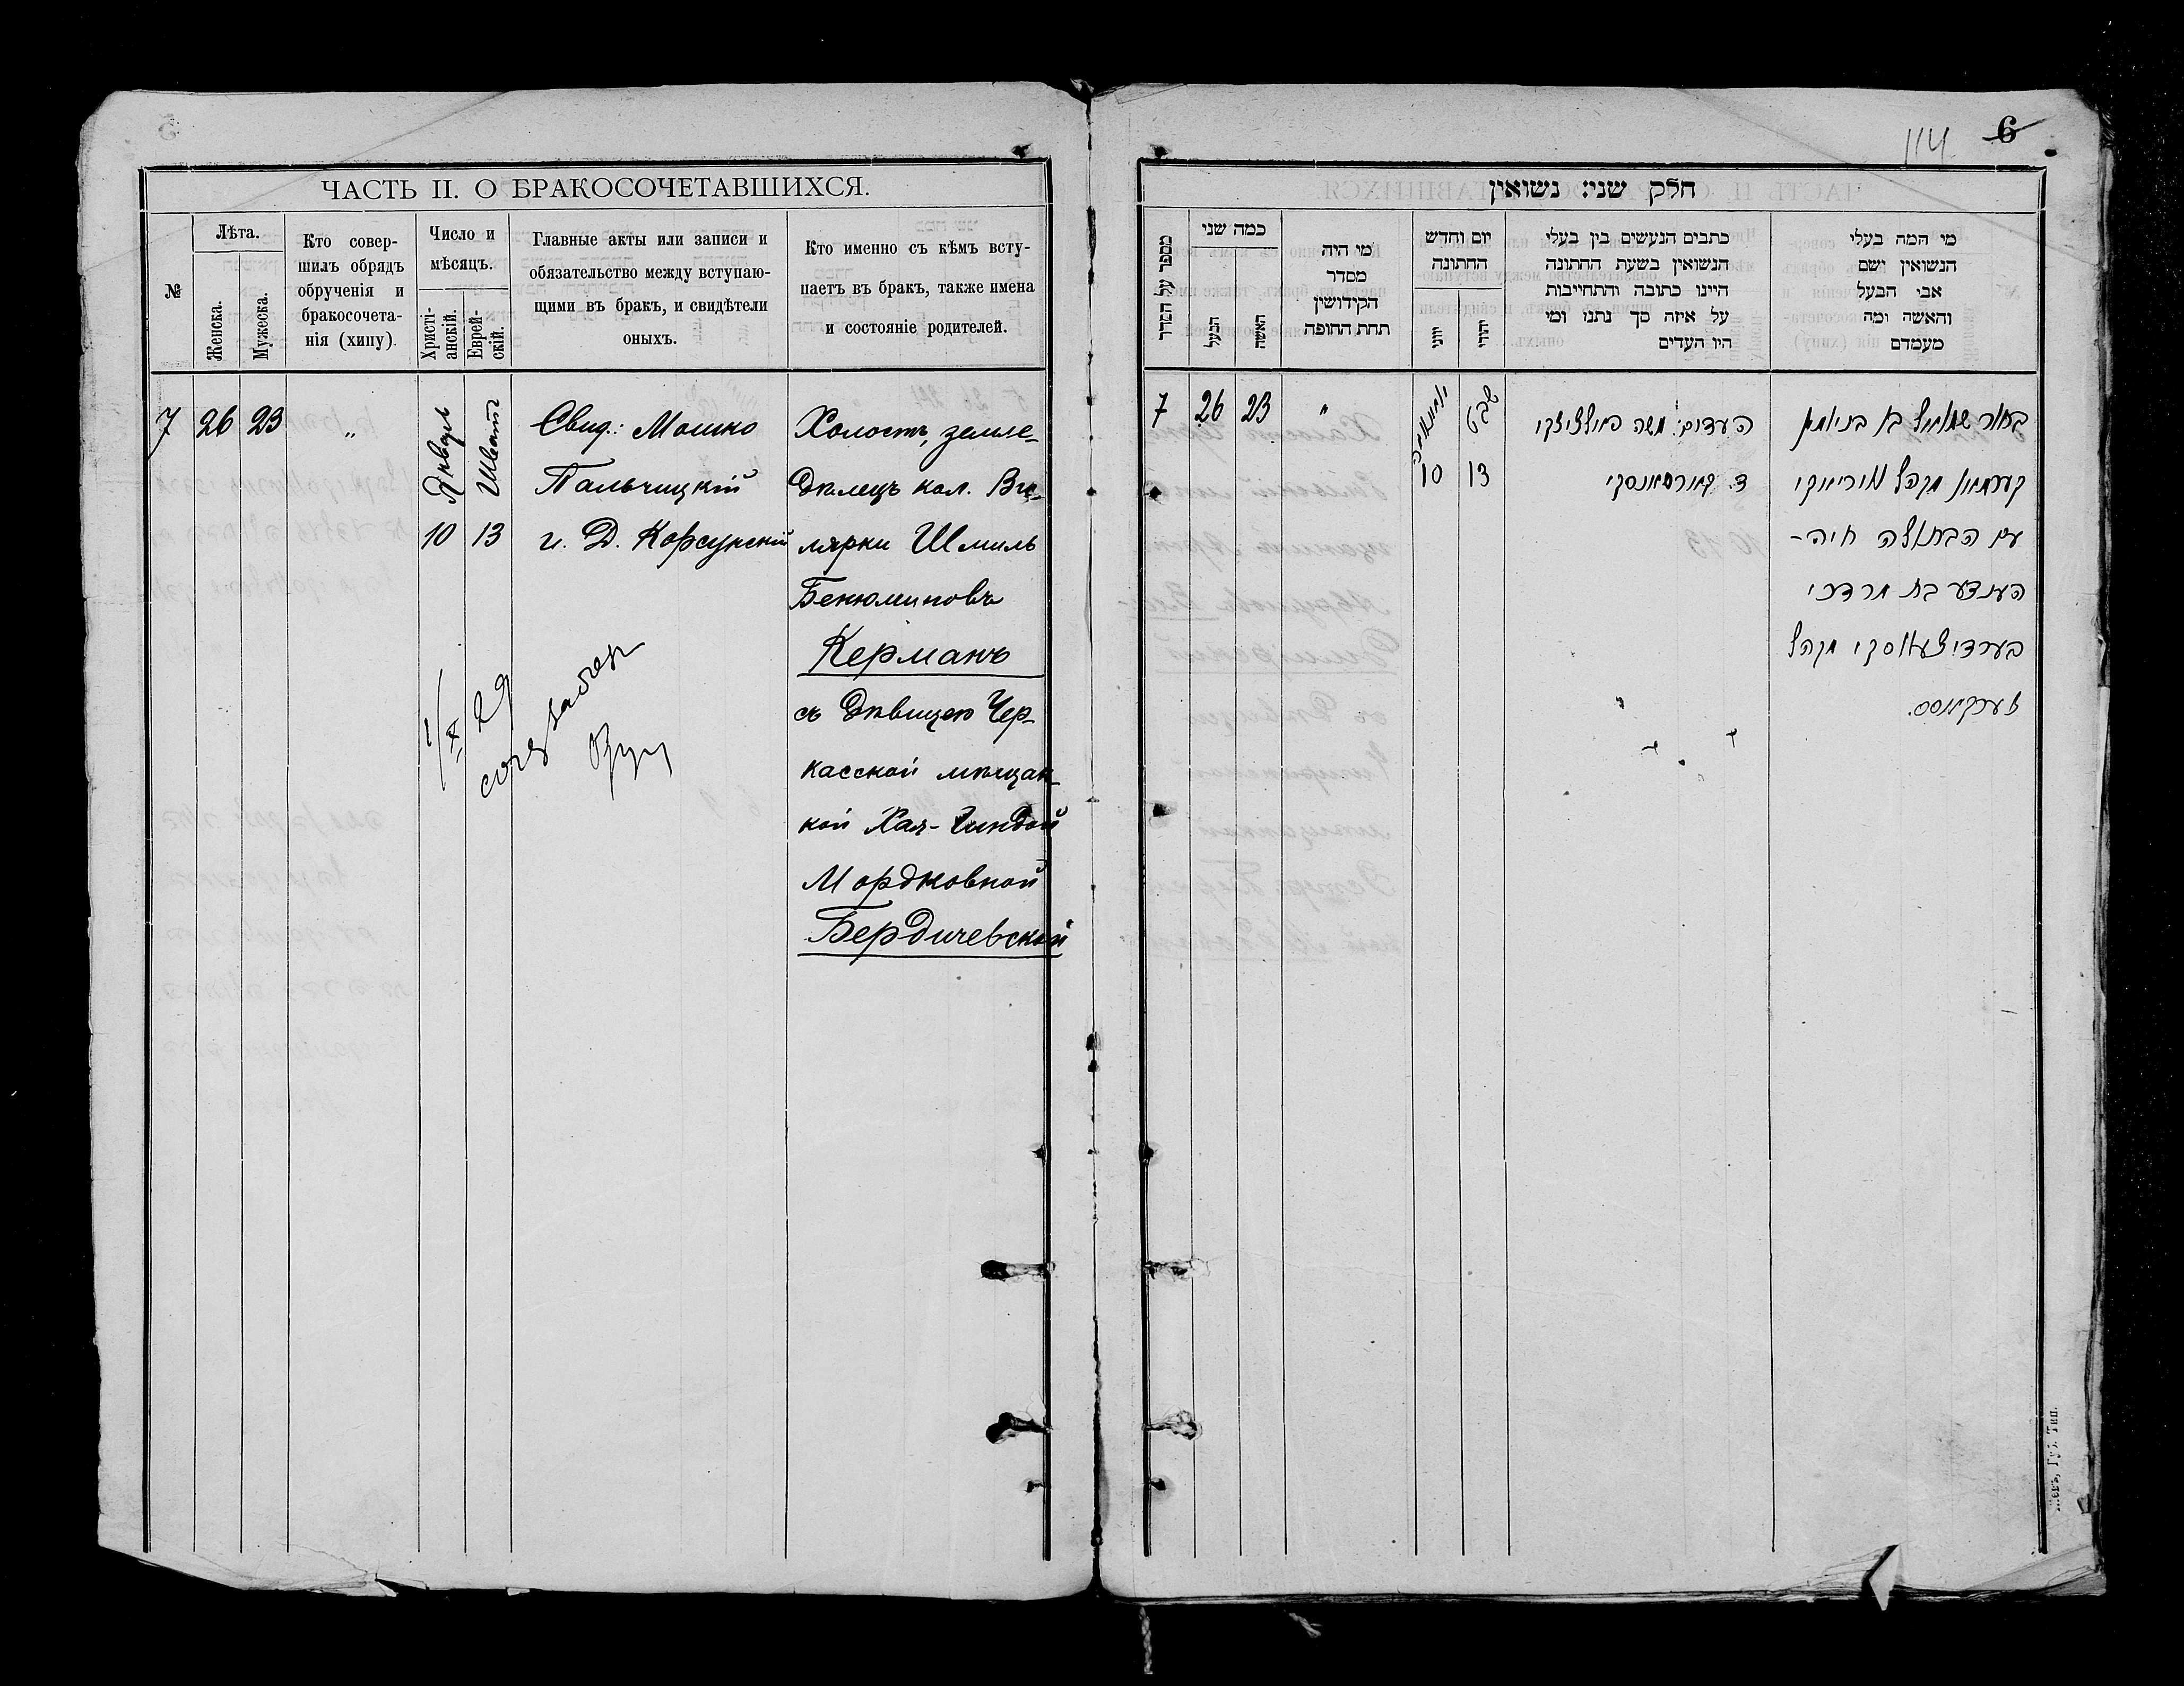 5
ЧАСТЬ II. О БРАКОСОЧЕТАВШИХСЯ.
№
Лѣта.
Женска.
Мужеска.
Кто совер-
шилъ обрядъ
обрученія и
бракосочета-
нія (хипу).
Число и
мѣсяцъ.
Христі-
анскій.
Еврей-
скій.
Главные акты или записи и
обязательство между вступаю-
щими въ бракъ, и свидѣтели
оныхъ.
Кто именно съ кѣмъ всту-
паетъ въ бракъ, также имена
и состояніе родителей.
7 26 23 „
10
Шватъ
13
Свид.: Мошко
Пальчицкій
и. Д. Корсунскій
Холостъ, земле-
дѣлецъ кол.
лярки Шмиль
Бенюминовъ
Керманъ
съ дѣвицею Чер-
касской мѣщан-
кой Хая-Гиндой
Мордковной
Бердичевской
1/X 29
114
6
חלק שני: נשואין
מספר על הסדר
כמה שני
הבעל
האשה
מי היה
מסדר
הקידושין
תחת החופה
יום וחדש
החתונה
יוני
יהודי
כתבים הנעשים בין בעלי
הנשואין בשעת החתונה
היינו כתובה והתחייבות
על איזה סך נתנו ומי
היו העדים
מי המה בעלי
הנשואין ושם
אבי הבעל
והאשה ומה
מעמדם
7 26 23 „
10
שבט
13
העדים: משה פאלציצקי
ד. קארסאנסקי
בחור שמואל בן בנימין
קערמאן מקהל
עם הבתולה חיה-
הענדע בת מרדכי
בערדיצעווסקי מקהל
צערקאסס.
Кіевъ, Губ. Тип.